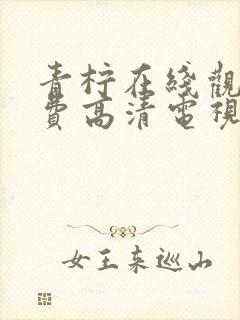 青柠在綫觀
費高清電視
女王来巡山